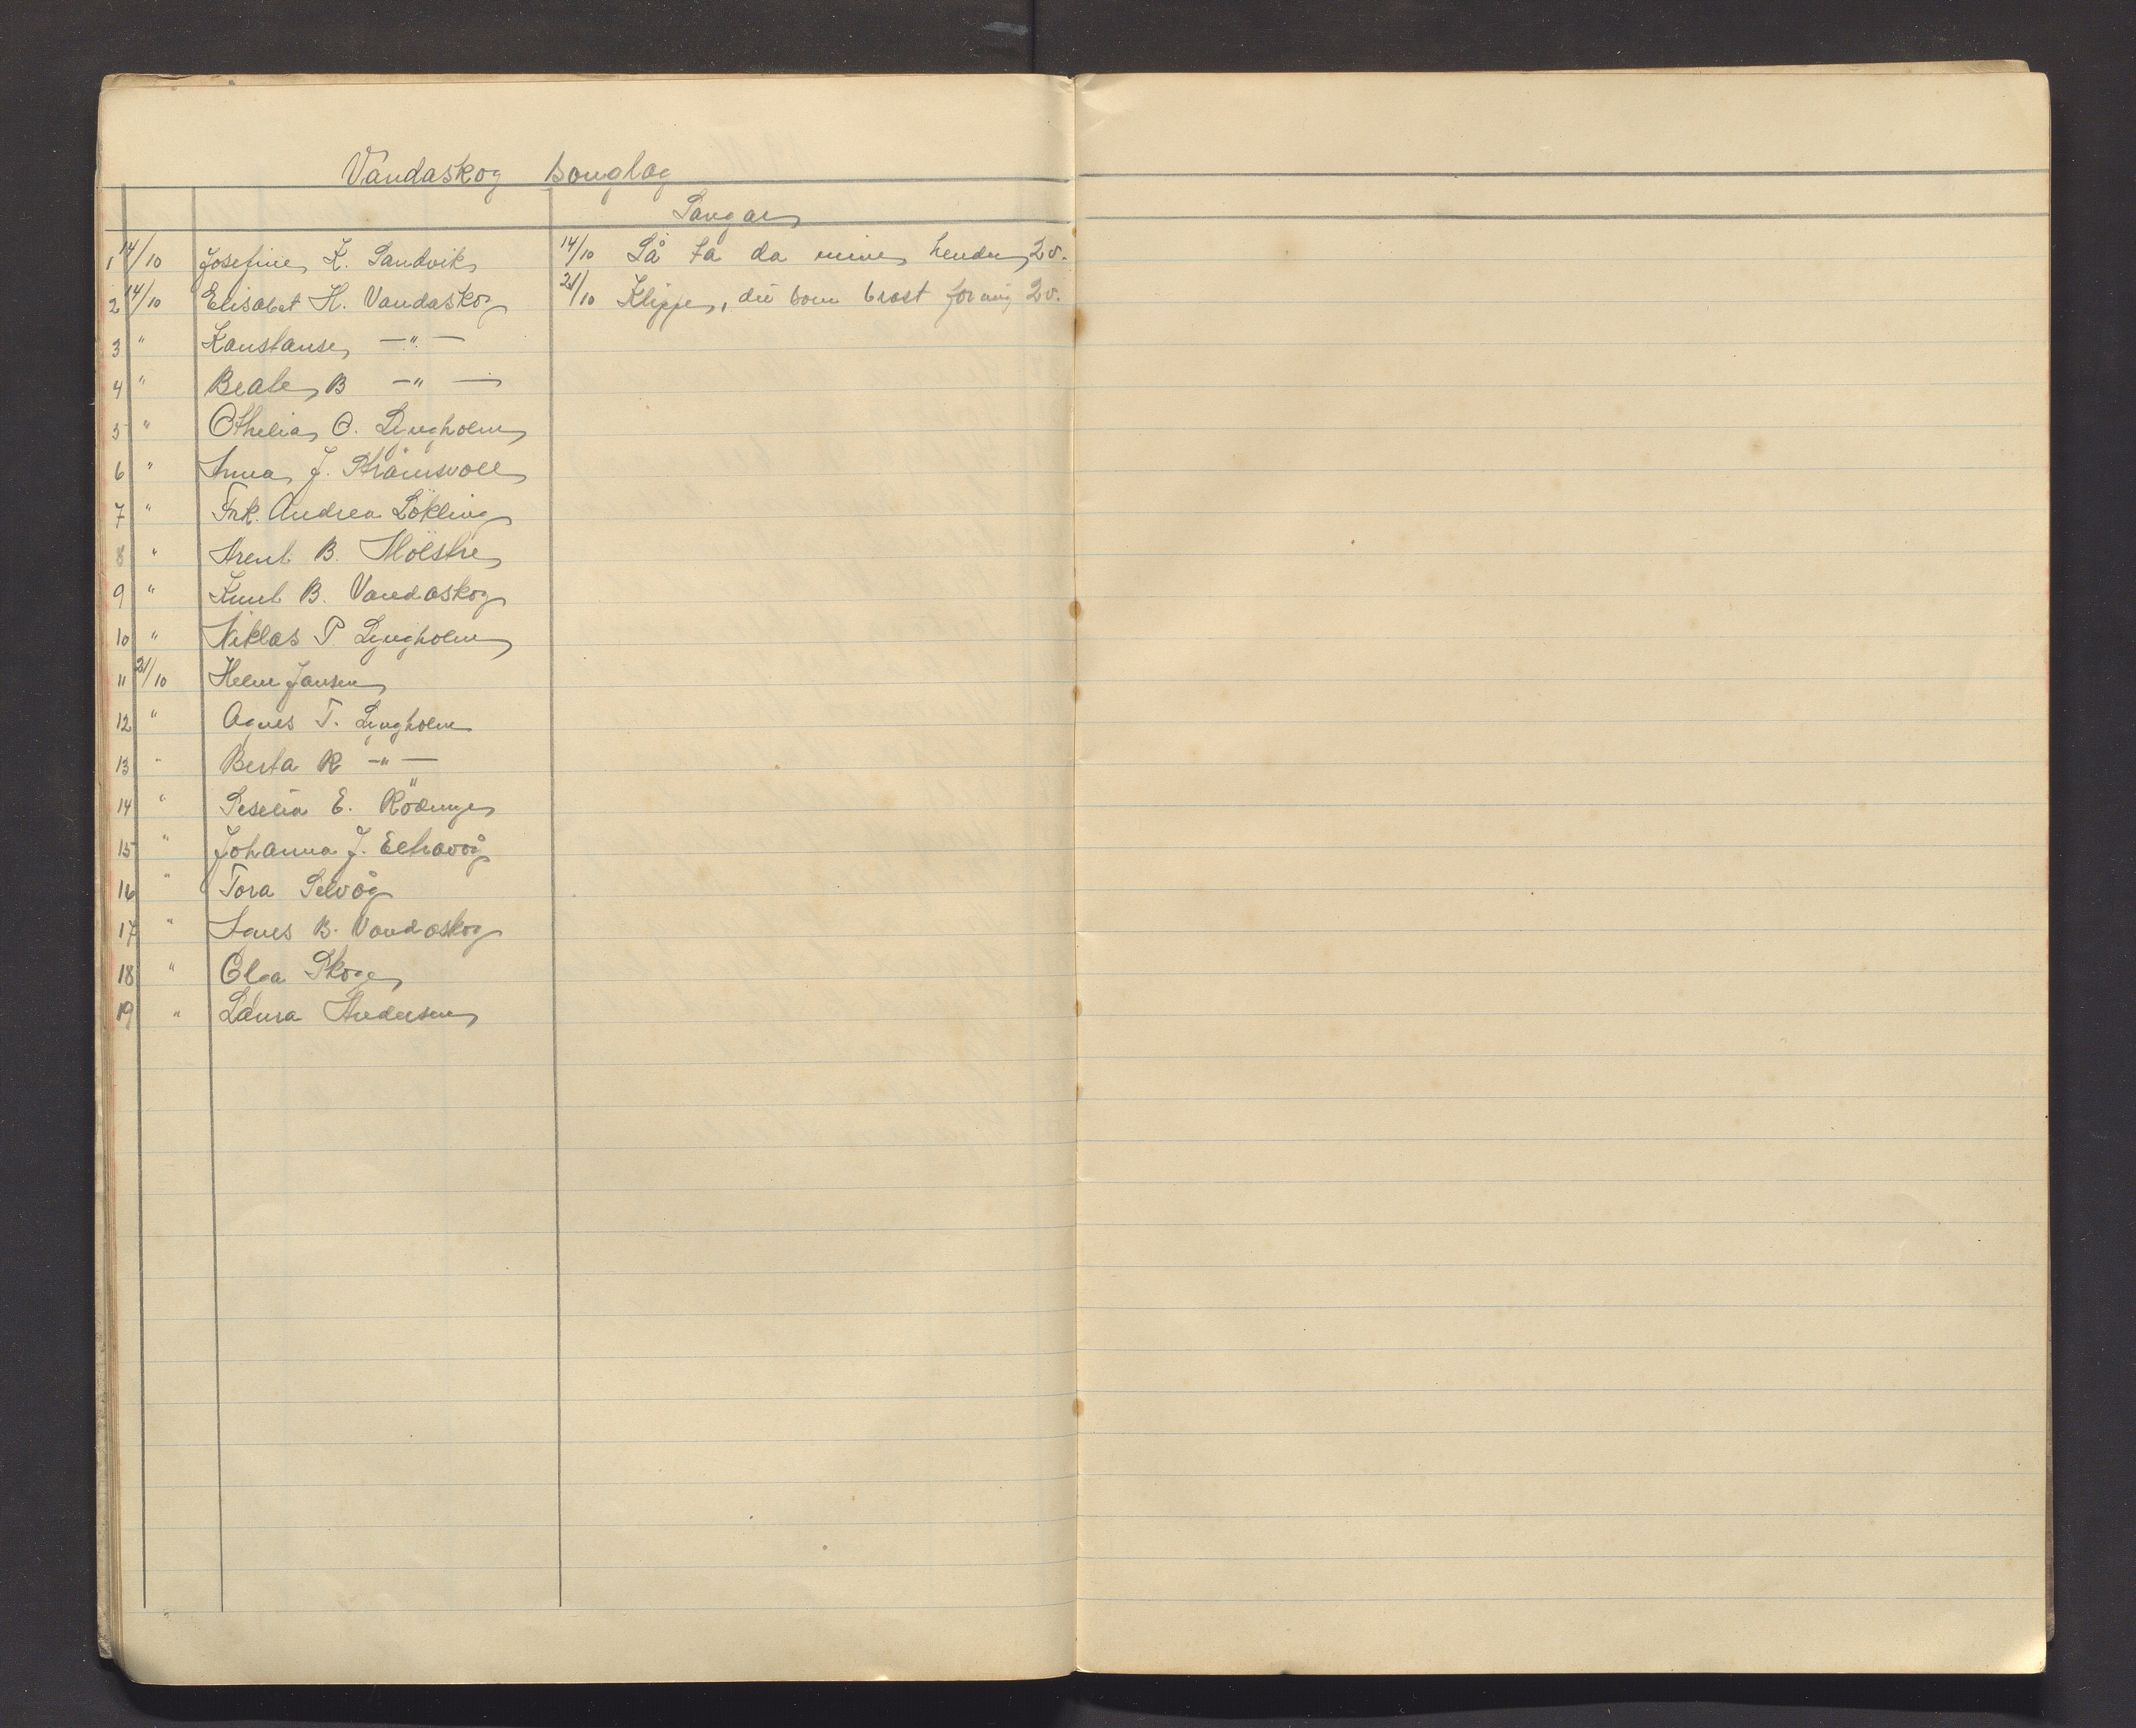 Vandaskog songlag
Sangar
1 14/10 Josefine K. Sandvik 14/10 Så ta da mine hender 2v.
2 14/10 Elisabet H. Vandaskog 21/10 Klippe, du som brast for mig 2v.
3 " Konstanse —"—
4 " Beate B —"—
5 " Othelia O. Lyngholm
6 " Anna J. Strömsvoll
7 " Frk. Andrea Lökling
8 " Arent B.
9 " Knut B. Vandaskog
10 " Niklas P Lyngholm
11 21/10 Helene Jansen
12 " Agnes T. Lyngholm
13 " Berta R —"—
14 " Seselia E.
15 " Johanna J. Eltravåg
16 " Tora Selvåg
17 " Agnes B. Vandaskog
18 " Olga Skoge
19 " Laura Andersen